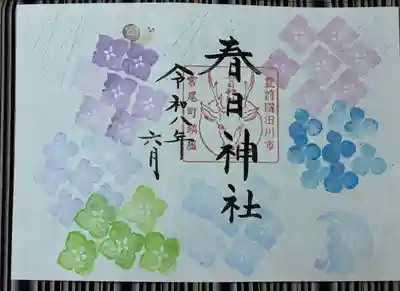 春日神社
令和八年
六月
豊前國田川市
宮尾町鎮座